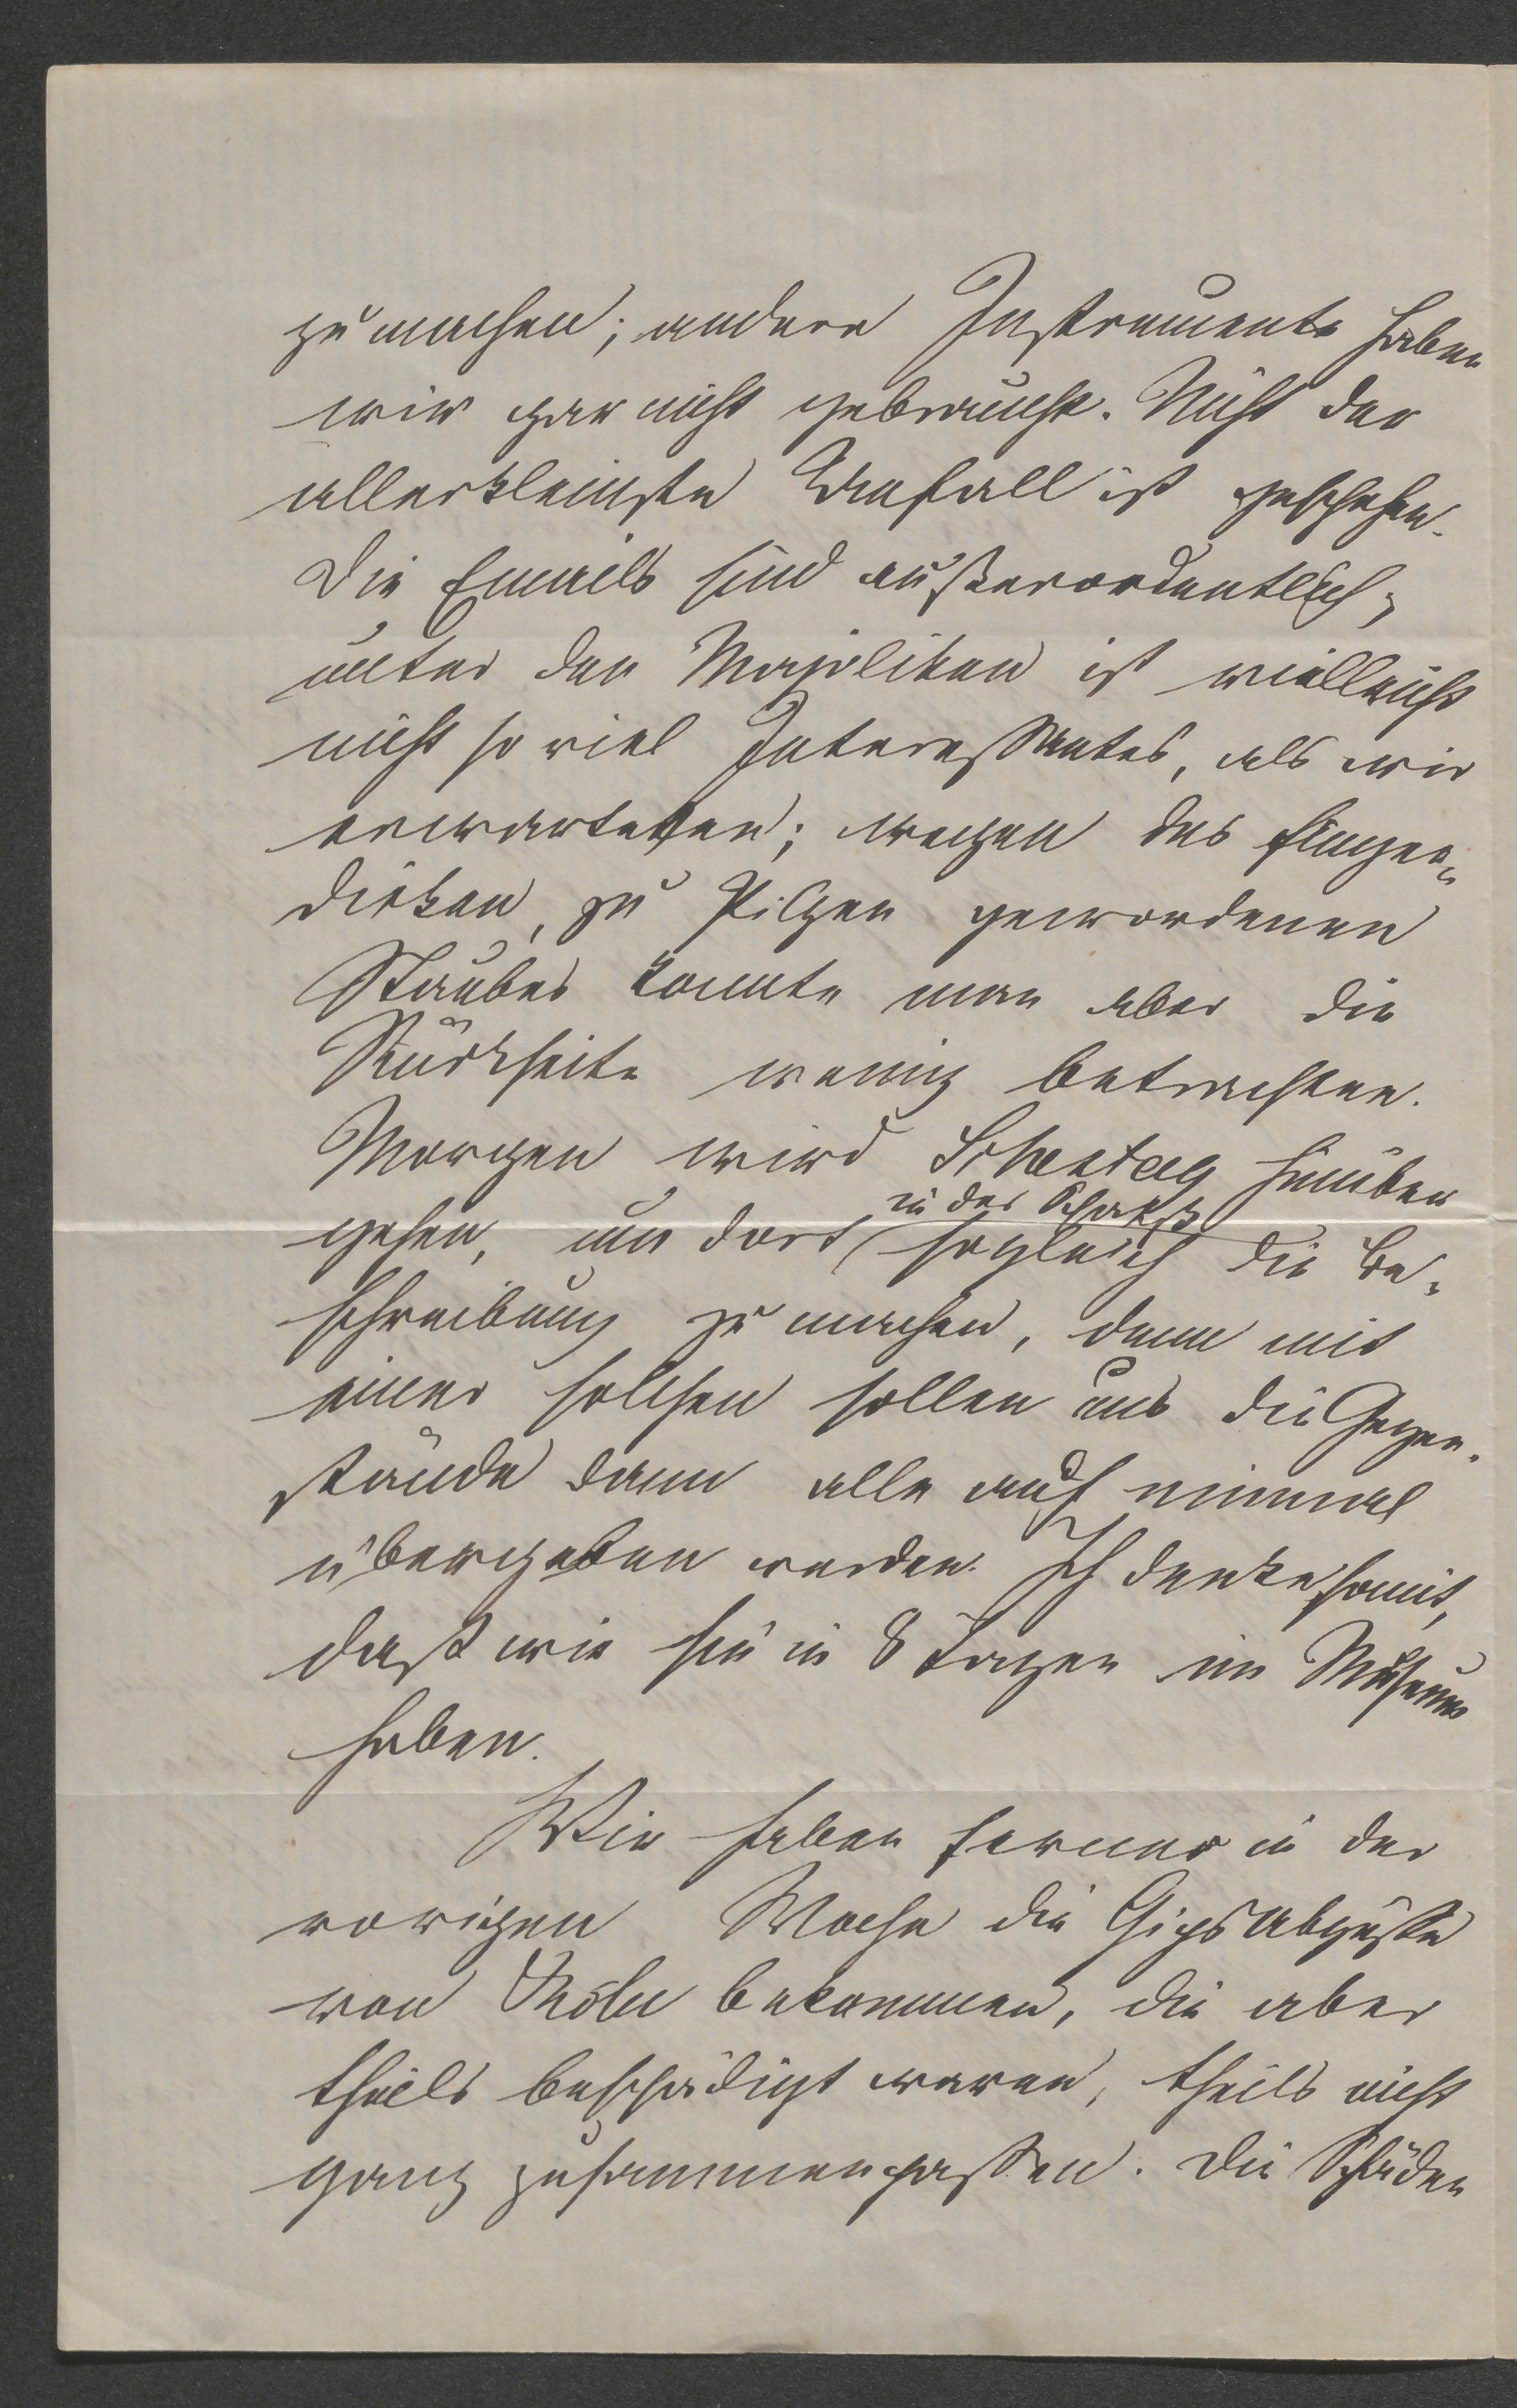 zu machen; andere Instrumente haben
wir gar nicht gebraucht. Nicht der
allerkleinste Unfall ist geschehen.
Die Emails sind außerordentlich;
unter den Majoliken ist vielleicht
nicht so viel Interessantes, als wir
erwarteten; wegen des finger=
dicken, zu Pilzen gewordenen
Staubes konnte man aber die
Rückseite wenig betrachten.
Morgen wird Schestag hinüber
gehen, um dort
in der Schatzk
sogleich die Be=
schreibung zu machen, denn mit
einer solchen sollen uns die Gegen=
stände dann alle auf einmal
übergeben werden. Ich denke somit,
daß wir sie in 8 Tagen im Museum
haben.
Wir haben ferner in der
vorigen Woche die Gipsabgüsse
von Köln bekommen, die aber
theils beschädigt waren, theils nicht
ganz zusammenpassen. Die Schäden